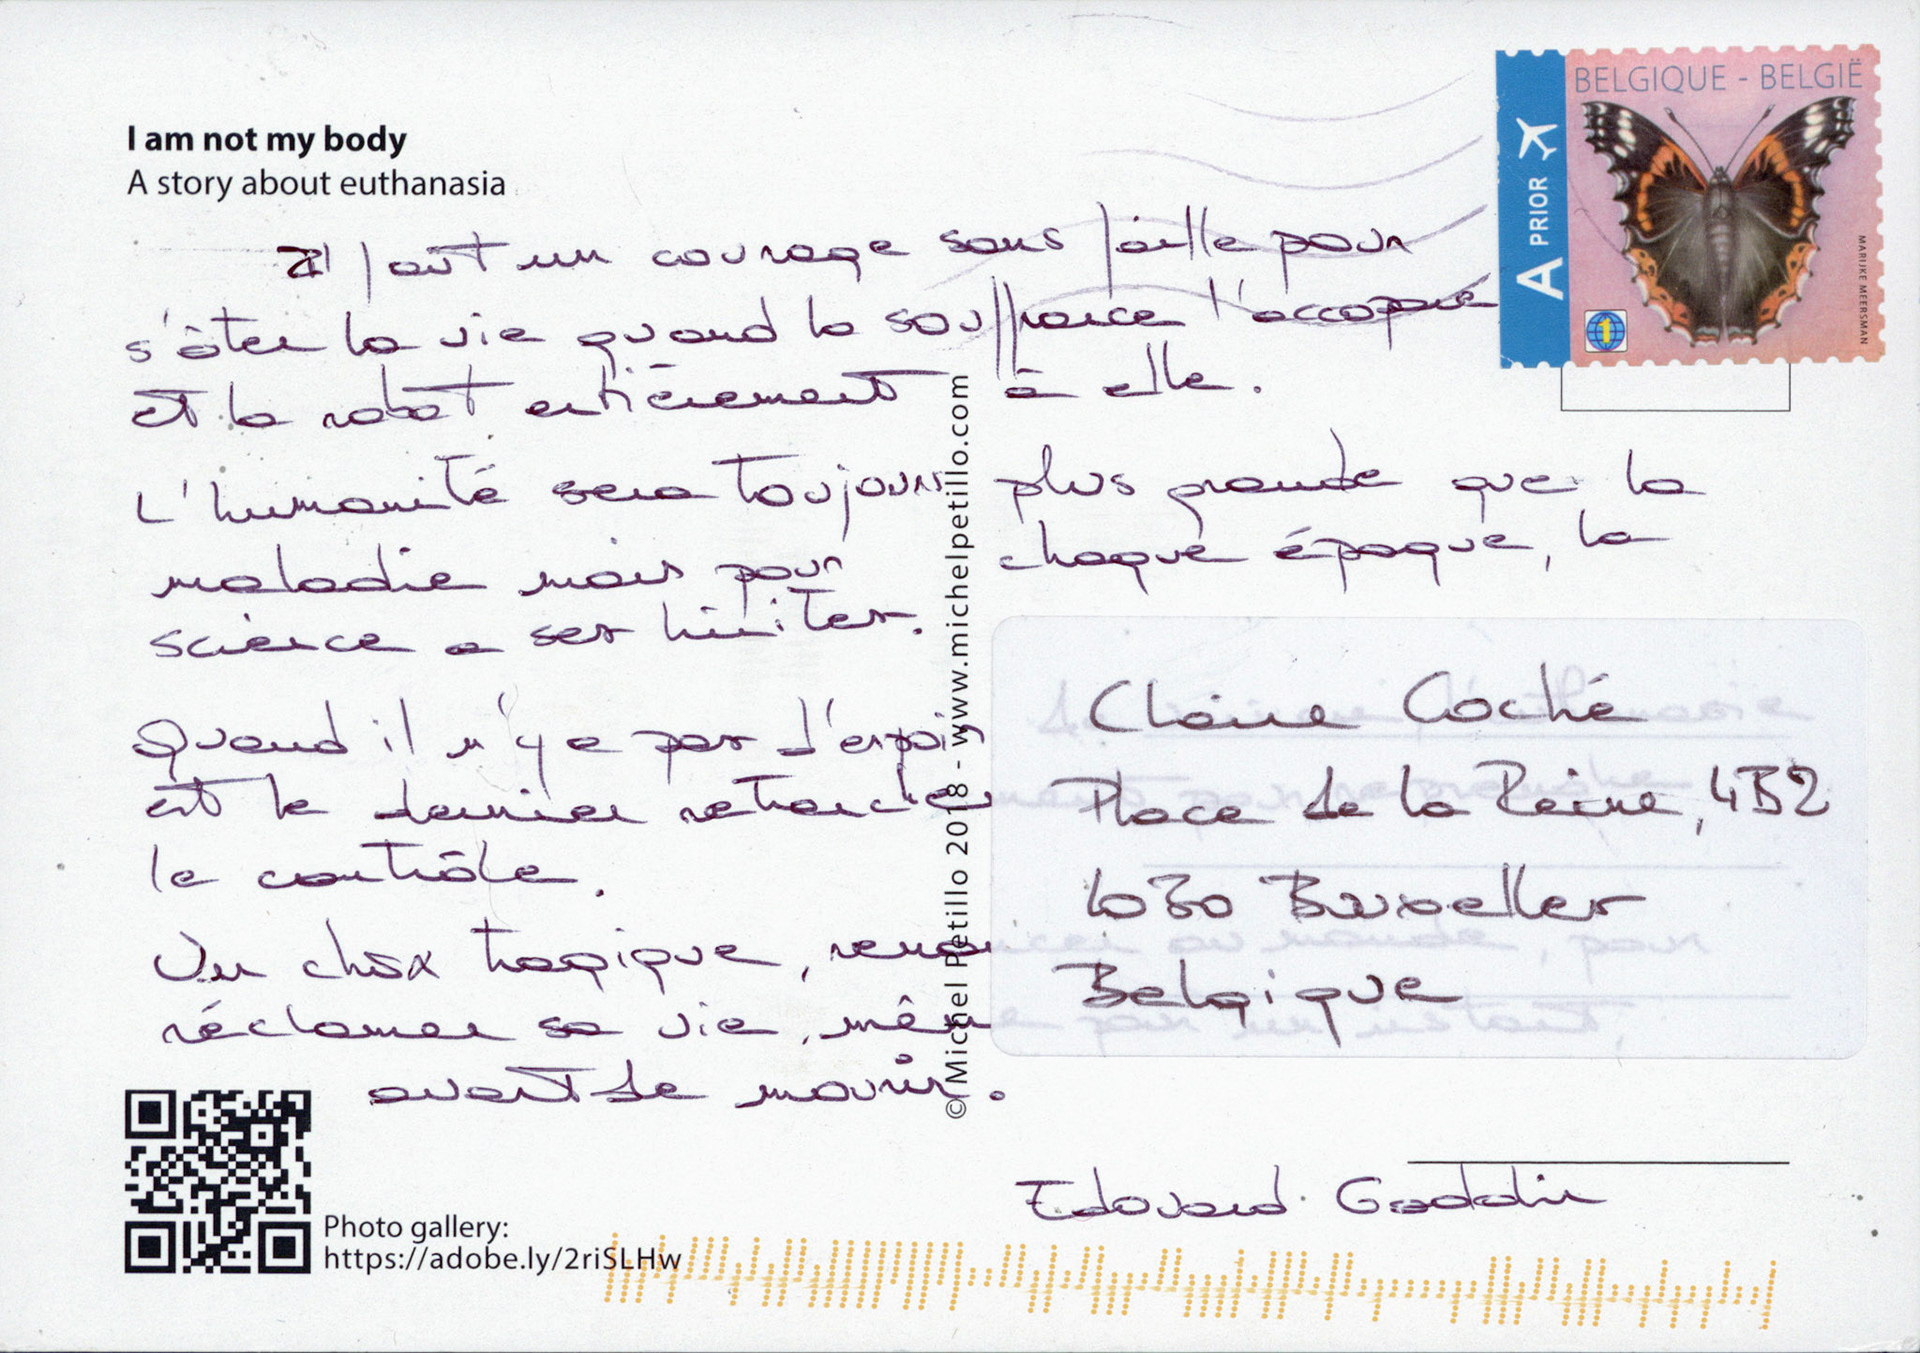 I am not my body
A story about euthanasia
BELGIQUE - BELGIË
A PRIOR
MARIJKE MEERSMAN
1
Il faut un courage sans faille pour
s'ôter la vie quand la souffrance l'accapare
et la rabat entièrement à elle.
L'humanité sera toujours plus grande que la
maladie mais pour chaque époque, la
science a ses limites.
Quand il n'y a pas d'espoir, l'euthanasie
est le dernier retranchement pour reprendre
le contrôle.
Un choix tragique, renoncer au monde, pour
réclamer sa vie, même pour un instant,
avant de mourir.
Claire Coché
Place de la Reine, 4B2
1030 Bruxelles
Belgique
Edouard Gaddin
© Michel Petillo 2018 - www.michelpetillo.com
Photo gallery:
https://adobe.ly/2riSLHw